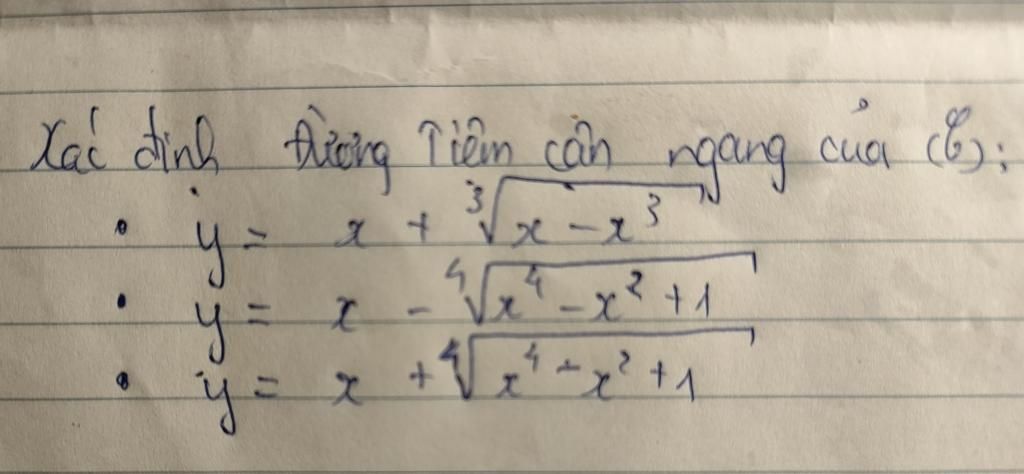 Xác định đường Tiệm cận ngang của (C):
• y = x + ∛(x - x³)
• y = x - ∜(x⁴ - x² + 1)
• y = x + ∜(x⁴ - x² + 1)